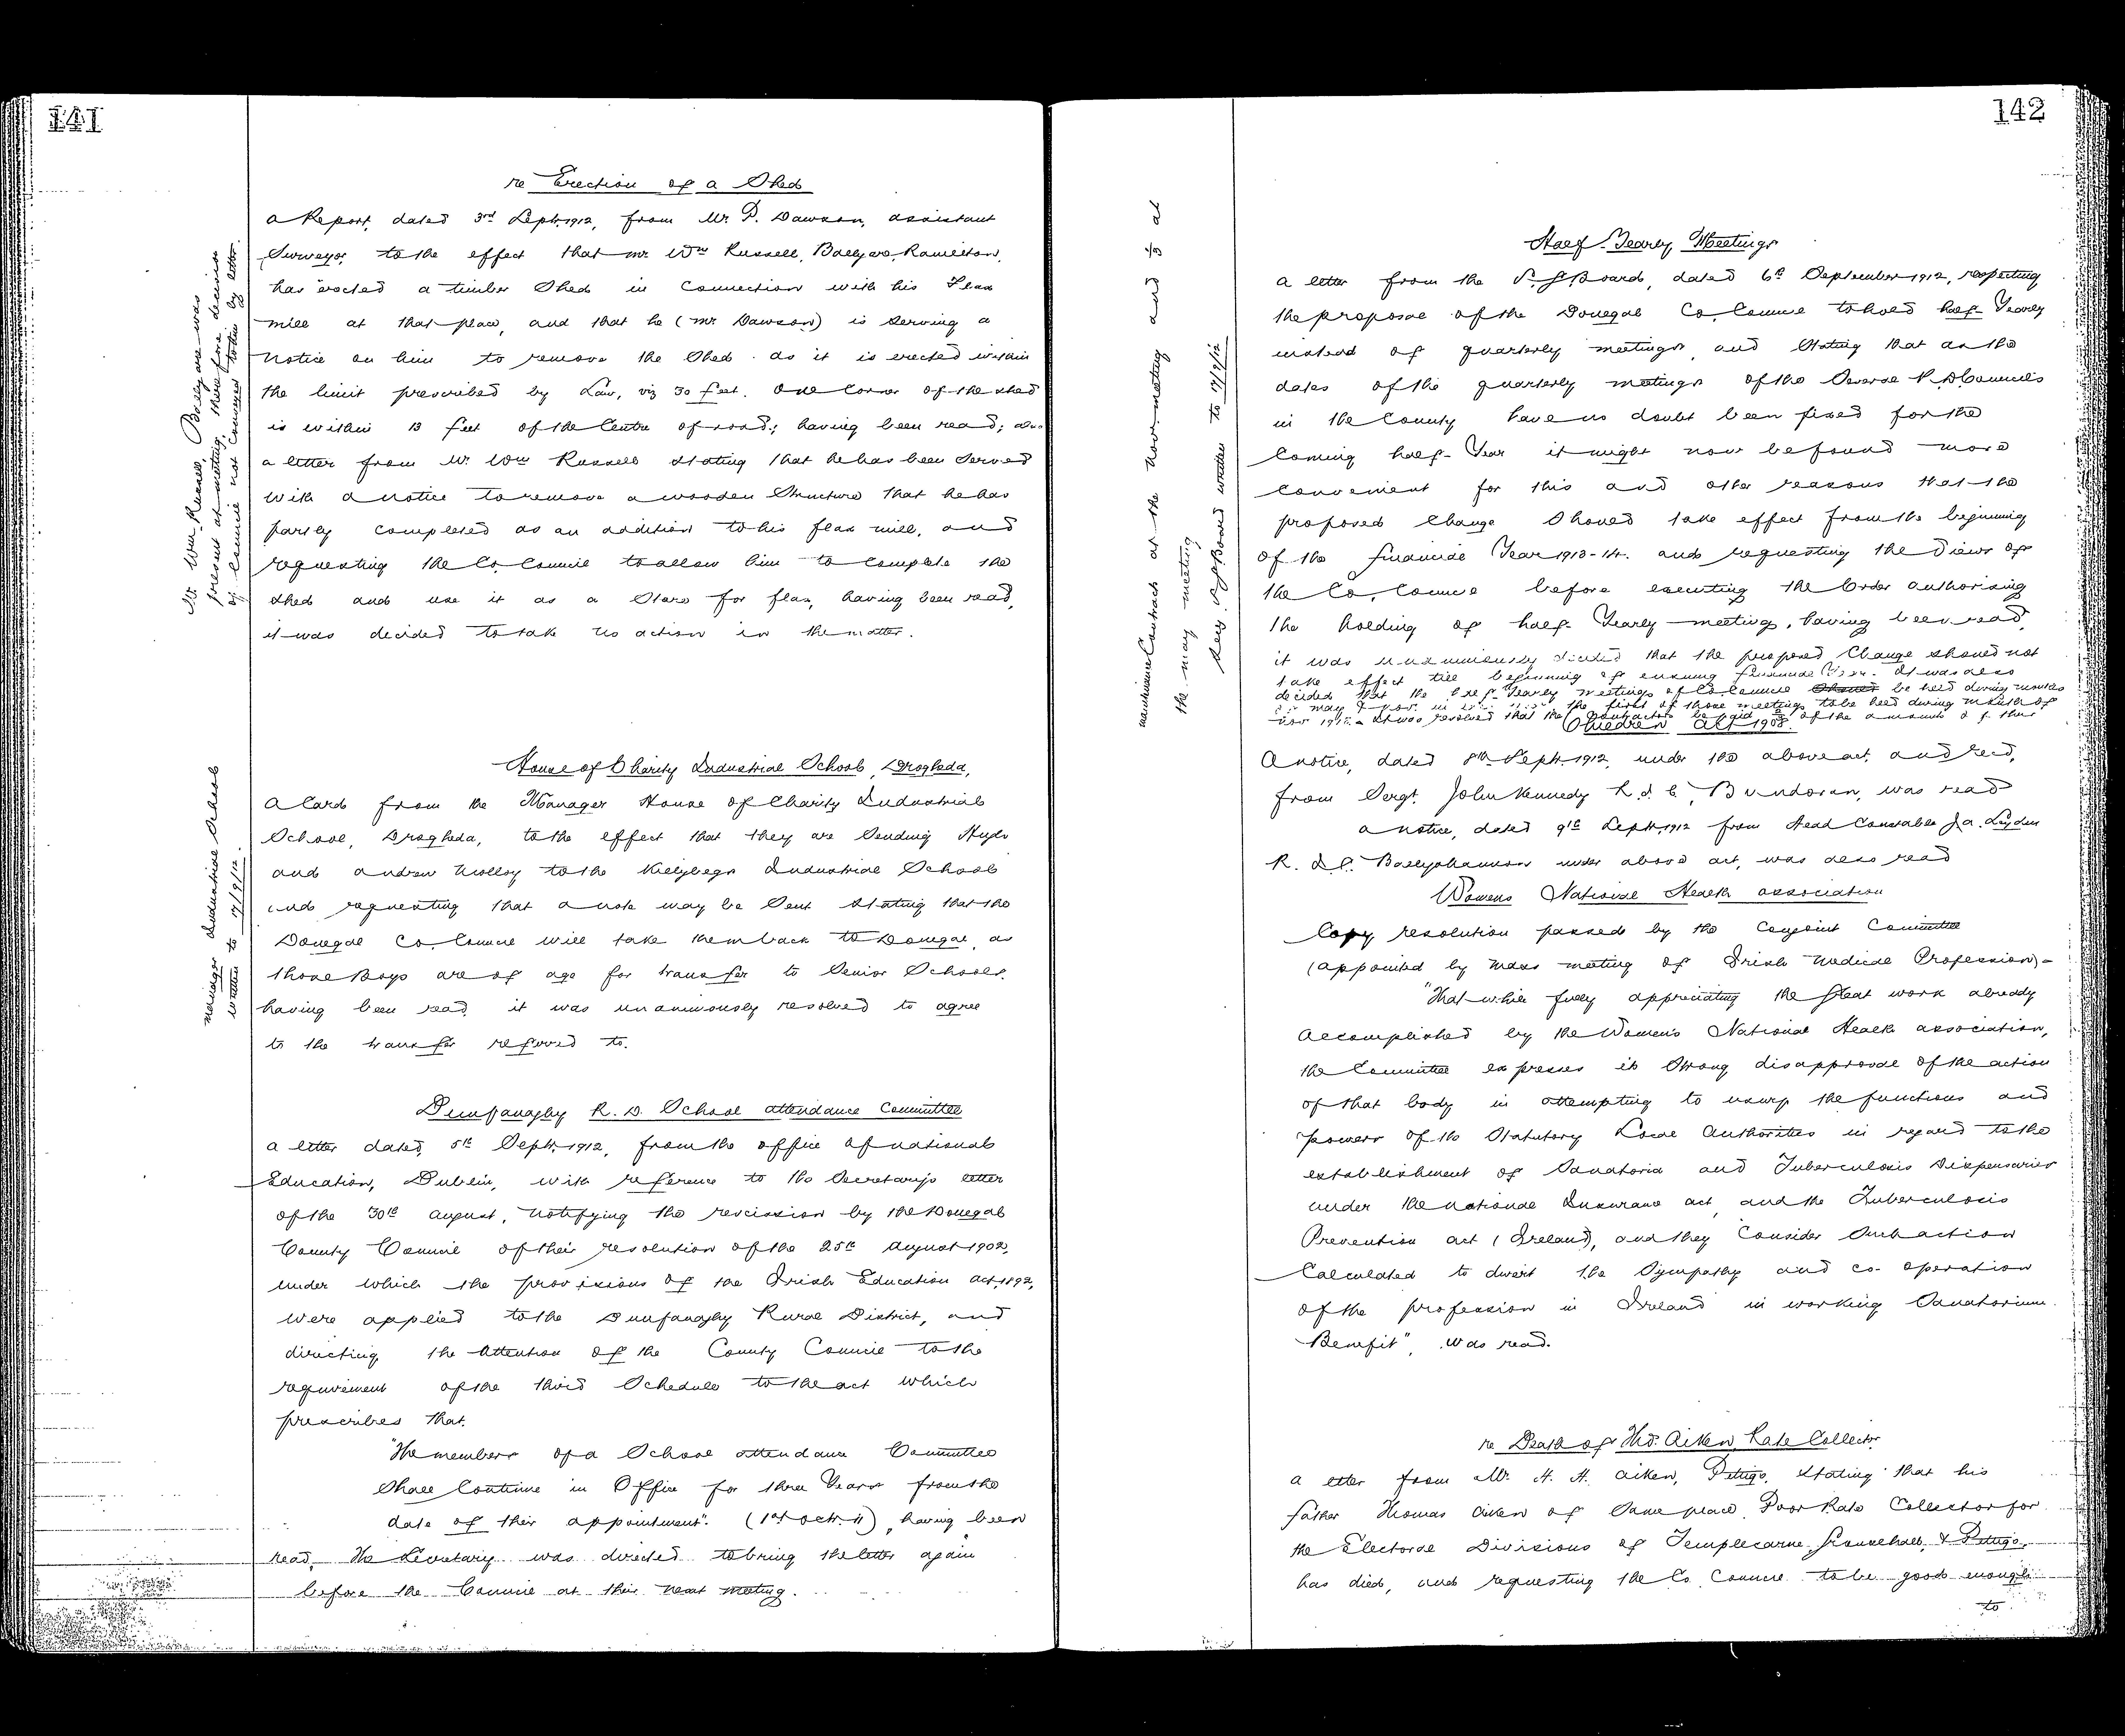 141
re Erection of a Shed
a Report, dated 3rd Sept. 1912, from Mr. P. Dawson, assistant
Surveyor, to the effect that Mr. Wm Russell, Ballyare, Ramelton,
has erected a timber Shed in Connection with his Flax
mill at that place, and that he (Mr. Dawson) is serving a
notice on him to remove the Shed as it is erected within
the limit prescribed by Law, viz 30 feet. One Corner of the shed
is within 13 feet of the Centre of road; having been read; also
a letter from Mr. Wm Russell stating that he has been served
with a notice to remove a wooden Structure that he has
partly completed as an addition to his flax mill, and
requesting the Co. Council to allow him to complete the
shed and use it as a Store for flax, having been read,
it was decided to take no action in the matter.
Mr. Wm. Russell, Ballyare was
present at meeting, therefore decision
of Council not conveyed to him by letter.
House of Charity Industrial School, Drogheda,
a Card from the Manager House of Charity Industrial
School, Drogheda, to the effect that they are Sending Hugh
and Andrew Molloy to the Killybegs Industrial School
and requesting that a note may be Sent Stating that the
Donegal Co. Council will take them back to Donegal, as
those Boys are of age for transfer to Senior Schools,
having been read, it was unanimously resolved to agree
to the transfer referred to.
Manager Industrial School
written to 17/9/12.
Dunfanaghy R. D. School attendance Committee
a letter dated, 5th Sept. 1912, from the office of national
Education, Dublin, with reference to the Secretary's letter
of the 30th August, notifying the rescission by the Donegal
County Council of their resolution of the 25th August 1902,
under which the provisions of the Irish Education act, 1892,
were applied to the Dunfanaghy Rural District, and
directing the Attention of the County Council to the
requirement of the third Schedule to the act which
prescribes that.
"The members of a School attendance Committee
Shall Continue in Office for three Years from the
date of their appointment". (1st Oct. 11), having been
read, The Secretary was directed to bring the letter again
before the Council at their next meeting.
142
Half-Yearly Meetings
a letter from the L. G Board, dated 6th September 1912, respecting
the proposal of the Donegal Co. Council to hold half-Yearly
instead of quarterly meetings, and Stating that as the
dates of the quarterly meetings of the Several R. D Councils
in the County have no doubt been fixed for the
Coming half-Year it might now be found more
convenient for this and other reasons that the
proposed Change Should take effect from the beginning
of the financial Year 1913-14. and requesting the Views of
the Co. Council before executing the Order authorising
the holding of half-Yearly meetings, having been read,
it was unanimously decided that the proposed Change should not
take effect till beginning of ensuing financial Year. It was also
decided that the half-Yearly Meetings of Co. Council should be held during months
of May & Nov. in the first of those meetings to be held during month of
it was resolved that the Contractors be paid of the amount of their
maintenance Contracts at the Nov. meeting and ⅓ at
the May meeting
Secy. L G Board written to 17/9/12
Children Act 1908.
A notice, dated 8th Sept. 1912, under the above act, and recd,
from Sergt. John Kennedy R. I. C, Bundoran, was read
a notice, dated 9th Sept. 1912 from Head Constable J. A. Leyden
R. I. C. Ballyshannon under above act, was also read
Womens National Health association
Copy resolution passed by the Conjoint Committee
(appointed by Mass meeting of Irish Medical Profession)-
"That while fully appreciating the great work already
accomplished by the Women's National Health association,
the Committee expresses its Strong disapproval of the action
of that body in attempting to usurp the functions and
powers of the Statutory Local Authorities in regard to the
establishment of Sanatoria and Tuberculosis Dispensaries
under the national Insurance act, and the Tuberculosis
Prevention act (Ireland), and they Consider Such action
Calculated to divert the Sympathy and co-operation
of the profession in Ireland in working Sanatorium
Benefit", was read.
re Death of Thos. Aiken, Rate Collector
a letter from Mr. H. H. Aiken, Pettigo, stating that his
father Thomas Aiken of Same place, Poor Rate Collector for
the Electoral Divisions of Templecarne, Grousehall, & Pettigo,
has died, and requesting the Co. Council to be good enough
to